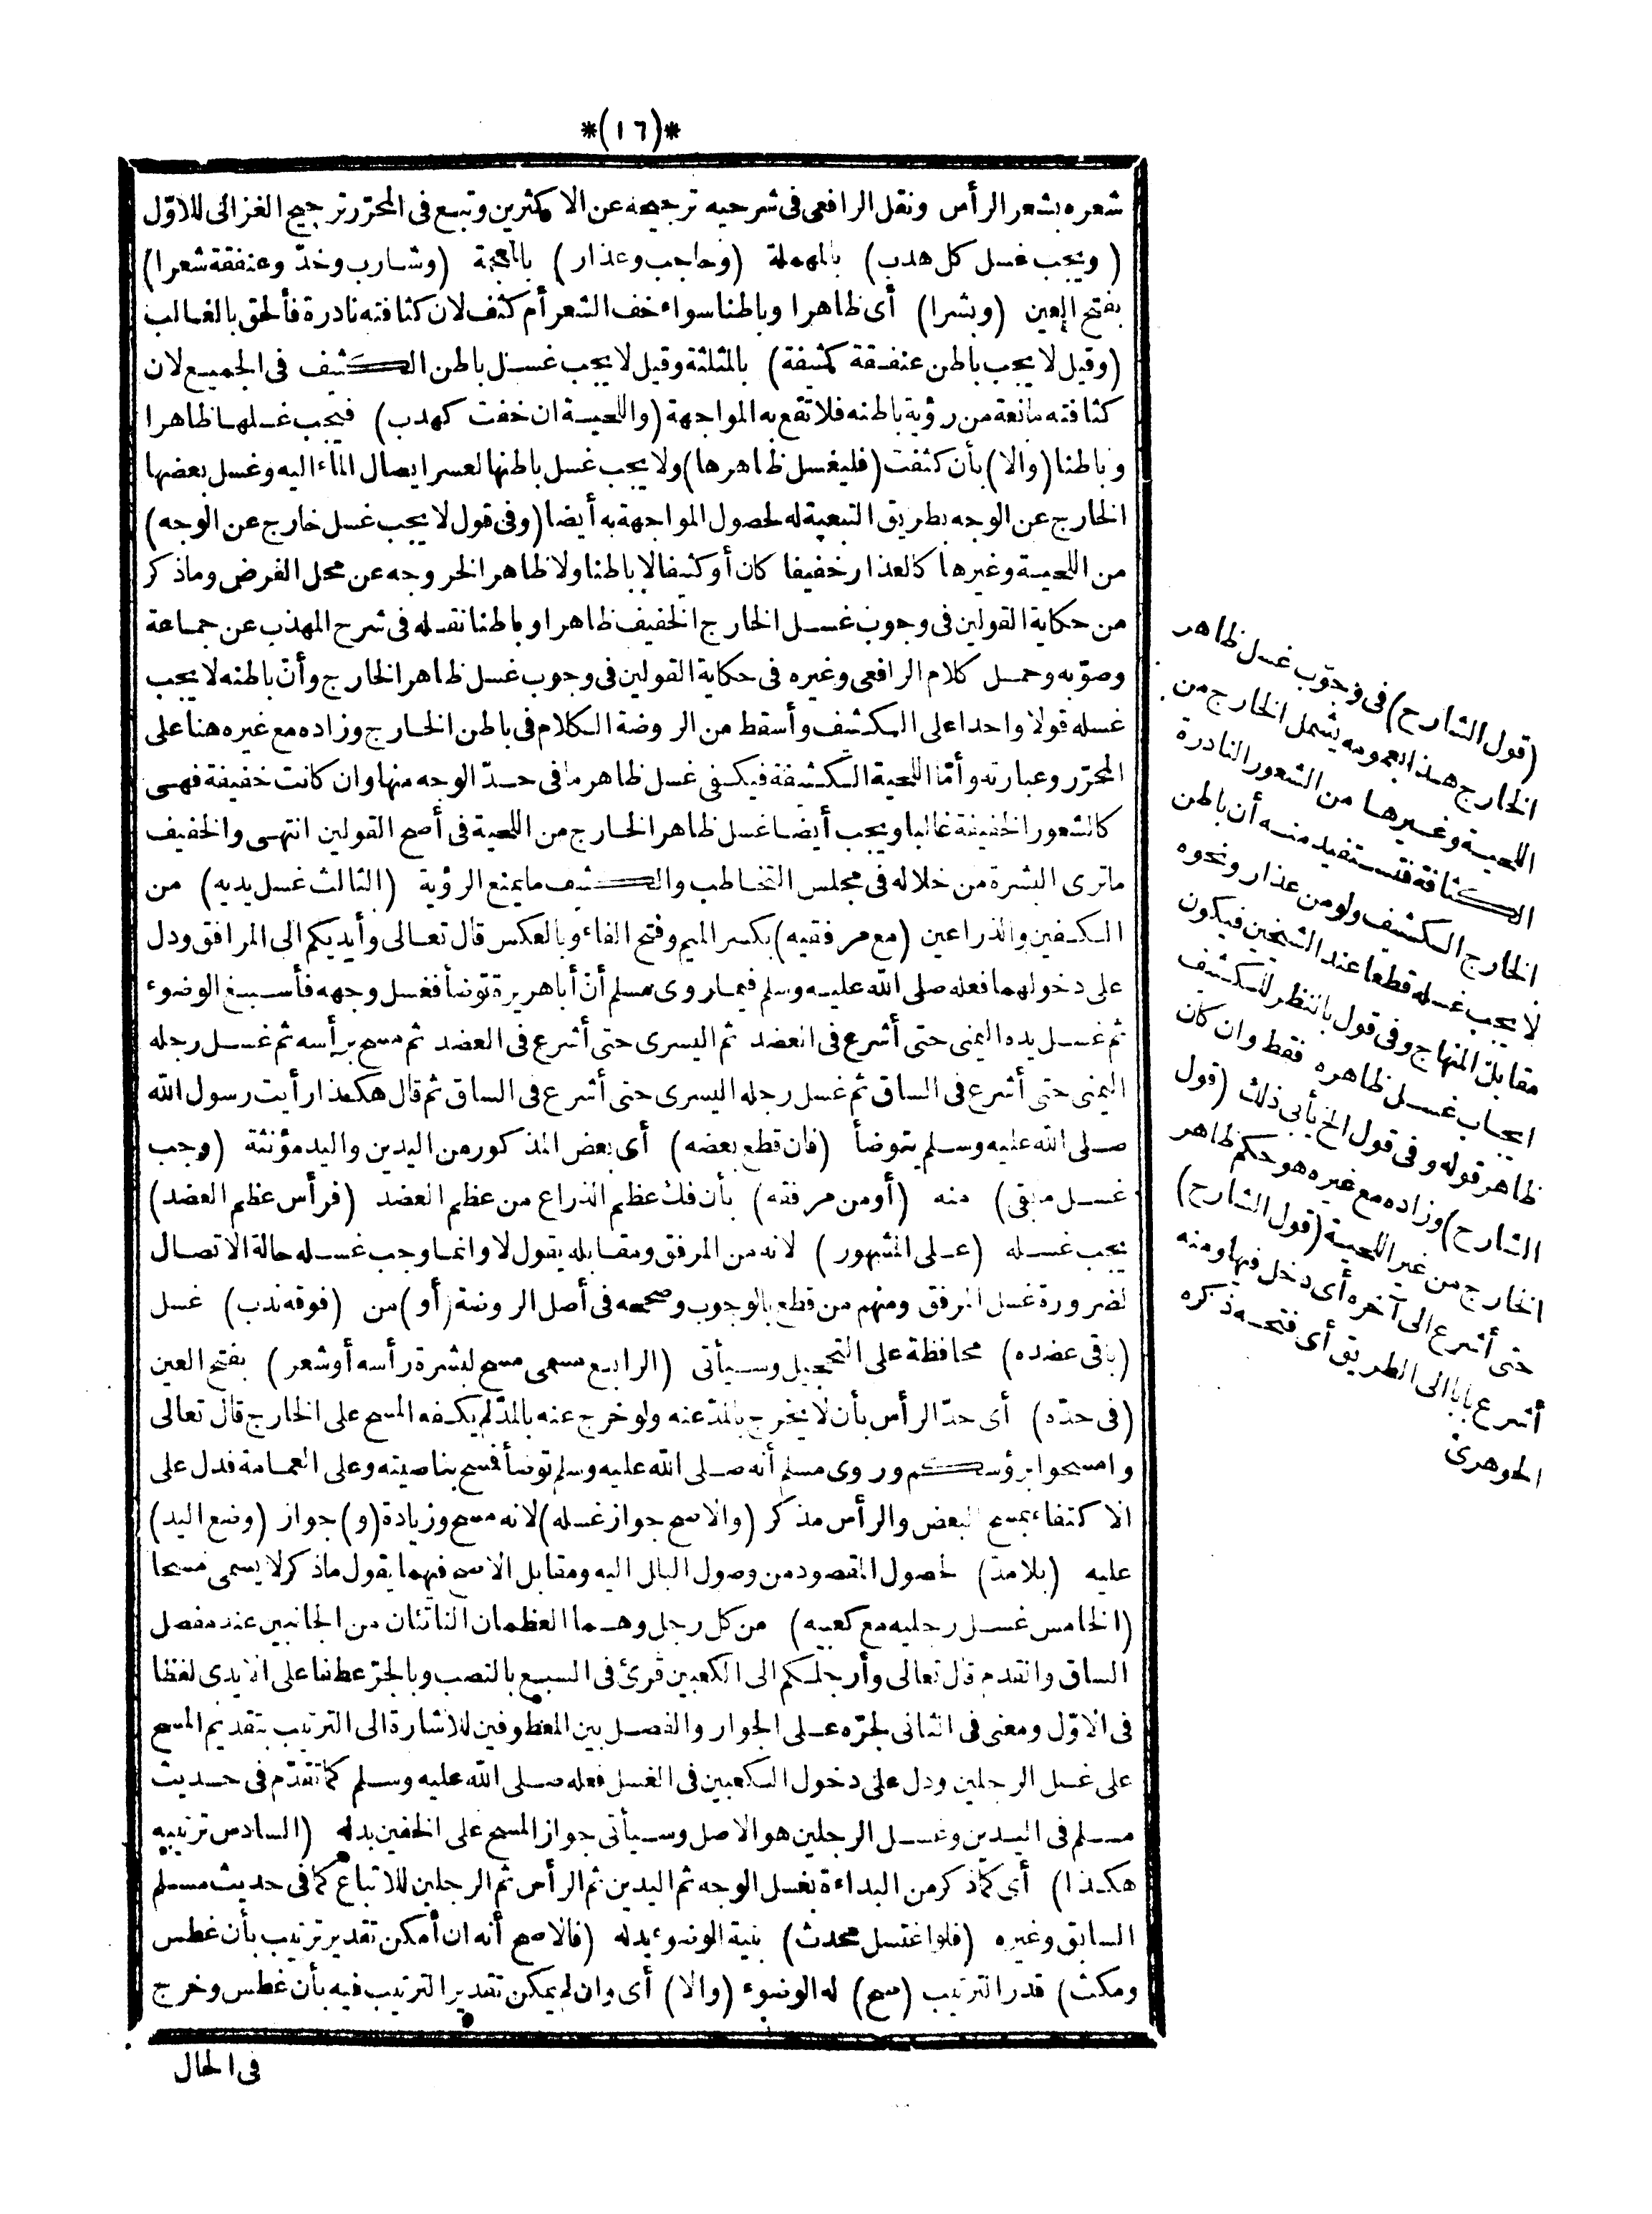 *(١٦)*
شعره بشعر الرأس ونقل الرافعى فى شرحيه ترجيحه عن الاكثرين وتبع فى المحرّر ترجيح الغزالى للاوّل
(ويجب غسل كل هدب) بالمهملة (وحاجب وعذار) بالمعجمة (وشارب وخدّ وعنفقة شعرا)
بفتح العين (وبشرا) أى ظاهرا وباطنا سواء خف الشعر أم كثف لان كثافته نادرة فألحق بالغالب
(وقيل لا يجب باطن عنفقة كثيفة) بالمثلثة وقيل لا يجب غسل باطن الكثيف فى الجميع لان
كثافته مانعة من رؤية باطنه فلا تقع به المواجهة (واللحية ان خفت كهدب) فيجب غسلها ظاهرا
وباطنا (والا) بأن كثفت (فليغسل ظاهرها) ولا يجب غسل باطنها لعسر ايصال الماء اليه وغسل بعضها
الخارج عن الوجه بطريق التبعية له لحصول المواجهة به أيضا (وفى قول لا يجب غسل خارج عن الوجه)
من اللحية وغيرها كالعذار خفيفا كان أو كثيفا لا باطنا ولا ظاهرا لخروجه عن محل الفرض وماذكر
من حكاية القولين فى وجوب غسل الخارج الخفيف ظاهرا وباطنا نقله فى شرح المهذب عن جماعة
وصوّبه وحمل كلام الرافعى وغيره فى حكاية القولين فى وجوب غسل ظاهر الخارج وأنّ باطنه لا يجب
غسله قولا واحدا على الكثيف وأسقط من الروضة الكلام فى باطن الخارج وزاده مع غيره هنا على
المحرّر وعبارته وأمّا اللحية الكثيفة فيكفى غسل ظاهر ما فى حدّ الوجه منها وان كانت خفيفة فهى
كالشعور الخفيفة غالبا ويجب أيضا غسل ظاهر الخارج من اللحية فى أصح القولين انتهى والخفيف
ماترى البشرة من خلاله فى مجلس التخاطب والكثيف مايمنع الرؤية (الثالث غسل يديه) من
الكفين والذراعين (مع مرفقيه) بكسر الميم وفتح الفاء وبالعكس قال تعالى وأيديكم الى المرافق ودل
على دخولهما فعله صلى الله عليه وسلم فيما روى مسلم أنّ أبا هريرة توضأ فغسل وجهه فأسبغ الوضوء
ثم غسل يده اليمنى حتى أشرع فى العضد ثم اليسرى حتى أشرع فى العضد ثم مسح برأسه ثم غسل رجله
اليمنى حتى أشرع فى الساق ثم غسل رجله اليسرى حتى أشرع فى الساق ثم قال هكذا رأيت رسول الله
صلى الله عليه وسلم يتوضأ (فان قطع بعضه) أى بعض المذكور من اليدين واليد مؤنثة (وجب
غسل مابقى) منه (أو من مرفقه) بأن فك عظم الذراع من عظم العضد (فرأس عظم العضد)
يجب غسله (على المشهور) لانه من المرفق ومقابله يقول لا وانما وجب غسله حالة الاتصال
لضرورة غسل المرفق ومنهم من قطع بالوجوب وصححه فى أصل الروضة (أو) من (فوقه ندب) غسل
(باقى عضده) محافظة على التحجيل وسيأتى (الرابع مسمى مسح لبشرة رأسه أو شعر) بفتح العين
(فى حدّه) أى حدّ الرأس بأن لا يخرج بالمدّ عنه ولو خرج عنه بالمدّ لم يكفه المسح على الخارج قال تعالى
وامسحوا برؤسكم وروى مسلم أنه صلى الله عليه وسلم توضأ فمسح بناصيته وعلى العمامة فدل على
الاكتفاء بمسح البعض والرأس مذكر (والاصح جواز غسله) لانه مسح وزيادة (و) جواز (وضع اليد)
عليه (بلامدّ) لحصول المقصود من وصول البلل اليه ومقابل الاصح فيهما يقول ماذكر لا يسمى مسحا
(الخامس غسل رجليه مع كعبيه) من كل رجل وهما العظمان الناتئان من الجانبين عند مفصل
الساق والقدم قال تعالى وأرجلكم الى الكعبين قرئ فى السبع بالنصب وبالجرّ عطفا على الايدى لفظا
فى الاوّل ومعنى فى الثانى لجرّه على الجوار والفصل بين المعطوفين للاشارة الى الترتيب بتقديم المسح
على غسل الرجلين ودل على دخول الكعبين فى الغسل فعله صلى الله عليه وسلم كما تقدّم فى حديث
مسلم فى اليدين وغسل الرجلين هو الاصل وسيأتى جواز المسح على الخفين بدله (السادس ترتيبه
هكذا) أى كماذكر من البداءة بغسل الوجه ثم اليدين ثم الرأس ثم الرجلين للاتباع كما فى حديث مسلم
السابق وغيره (فلو اغتسل محدث) بنية الوضوء بدله (فالاصح أنه ان أمكن تقدير ترتيب بأن غطس
ومكث) قدر الترتيب (صح) له الوضوء (والا) أى وان لم يمكن تقدير الترتيب فيه بأن غطس وخرج
فى الحال
(قول الشارح) فى وجوب غسل ظاهر
الخارج هذا بعمومه يشمل الخارج من
اللحية وغيرها من الشعور النادرة
الكثافة فتستفيد منه أن باطن
الخارج الكثيف ولو من عذار ونحوه
لا يجب غسله قطعا عند الشيخين فيكون
مقابل المنهاج وفى قول بالنظر للكثيف
ايجاب غسل ظاهره فقط وان كان
ظاهر قوله وفى قول الخ يأبى ذلك (قول
الشارح) وزاده مع غيره هو حكم ظاهر
الخارج من غير اللحية (قول الشارح)
حتى أشرع الى آخره أى دخل فيها ومنه
أشرع بابا الى الطريق أى فتحه ذكره
الجوهرىّ